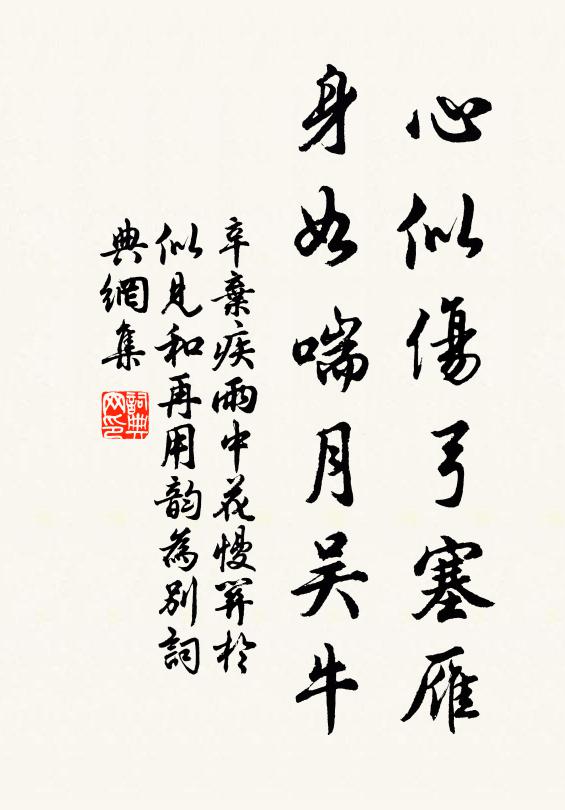 心似傷弓塞雁
身如喘月吴牛
辛棄疾雨中花慢於
似見和再用韵為別詞
典網集
詞典
网印